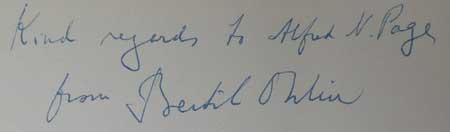 Kind regards to Alfred N. Page
from Bertil Ohlin